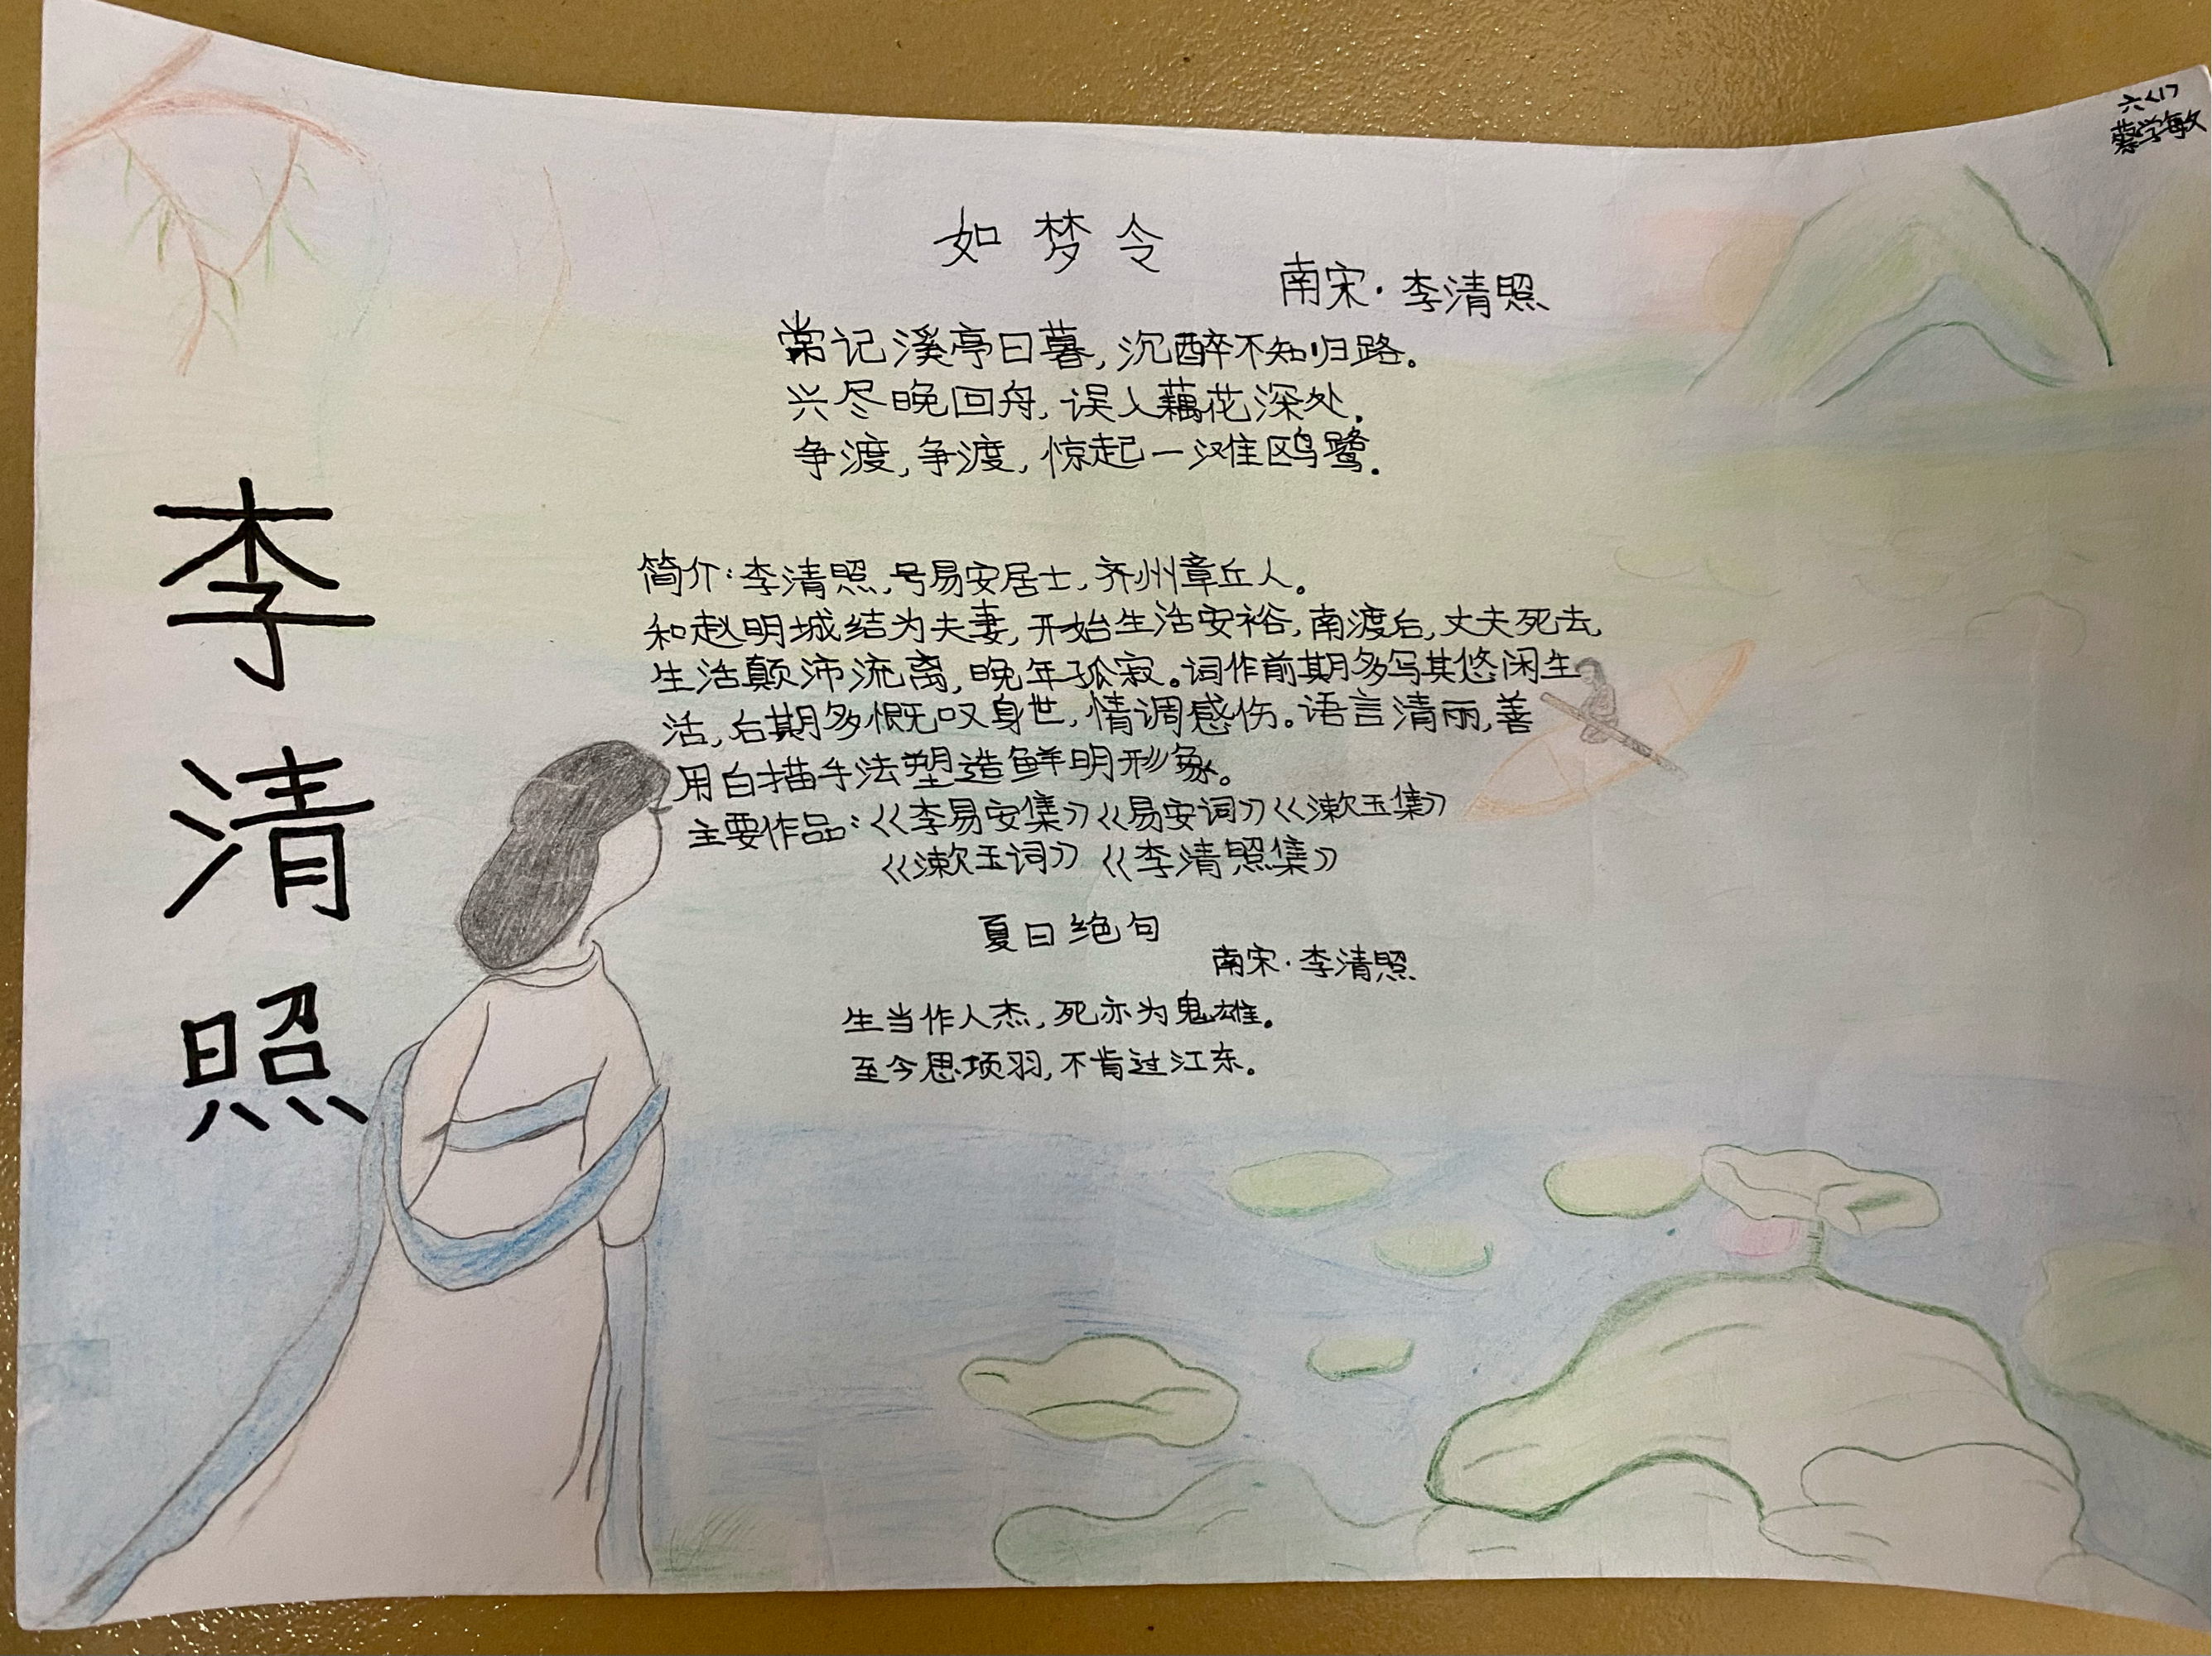 六<1>
蔡学敏
李清照
如梦令
南宋·李清照
常记溪亭日暮,沉醉不知归路。
兴尽晚回舟,误入藕花深处。
争渡,争渡,惊起一滩鸥鹭.
简介:李清照,号易安居士,齐州章丘人。
和赵明城结为夫妻,开始生活安裕,南渡后,丈夫死去,
生活颠沛流离,晚年孤寂。词作前期多写其悠闲生
活,后期多慨叹身世,情调感伤。语言清丽,善
用白描手法塑造鲜明形象。
主要作品:《李易安集》《易安词》《漱玉集》
《漱玉词》《李清照集》
夏日绝句
南宋·李清照
生当作人杰,死亦为鬼雄。
至今思项羽,不肯过江东。